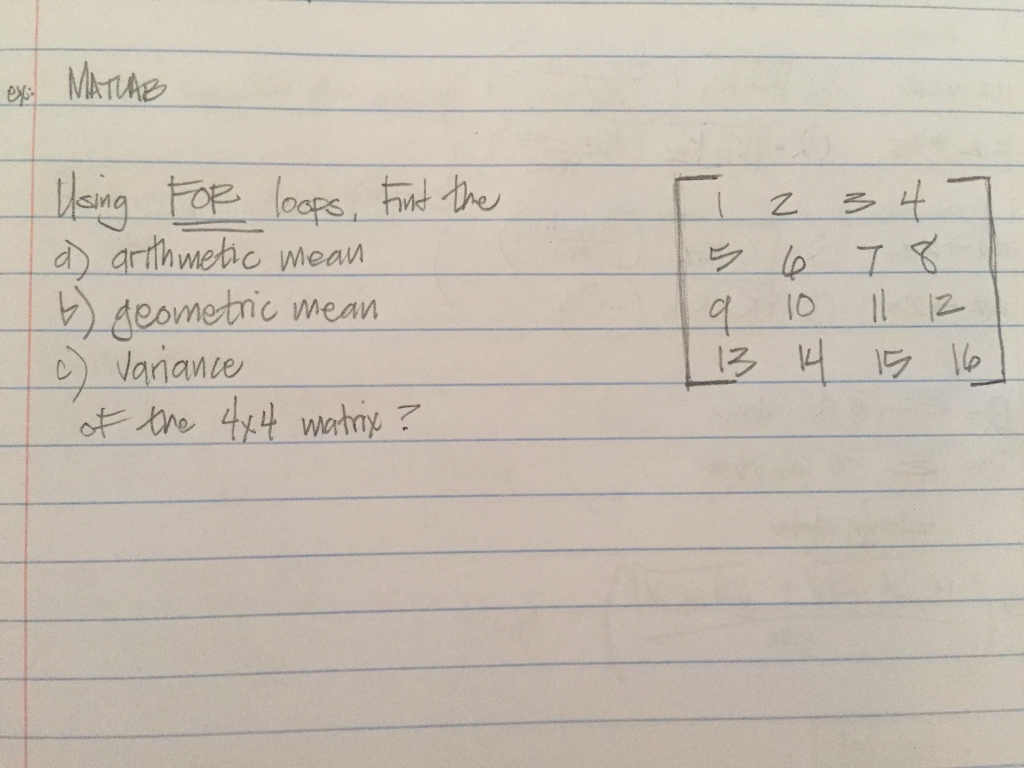 ex: MATLAB
Using FOR loops, find the
a) arithmetic mean
b) geometric mean
c) variance
of the 4x4 matrix?
1 2 3 4
5 6 7 8
9 10 11 12
13 14 15 16